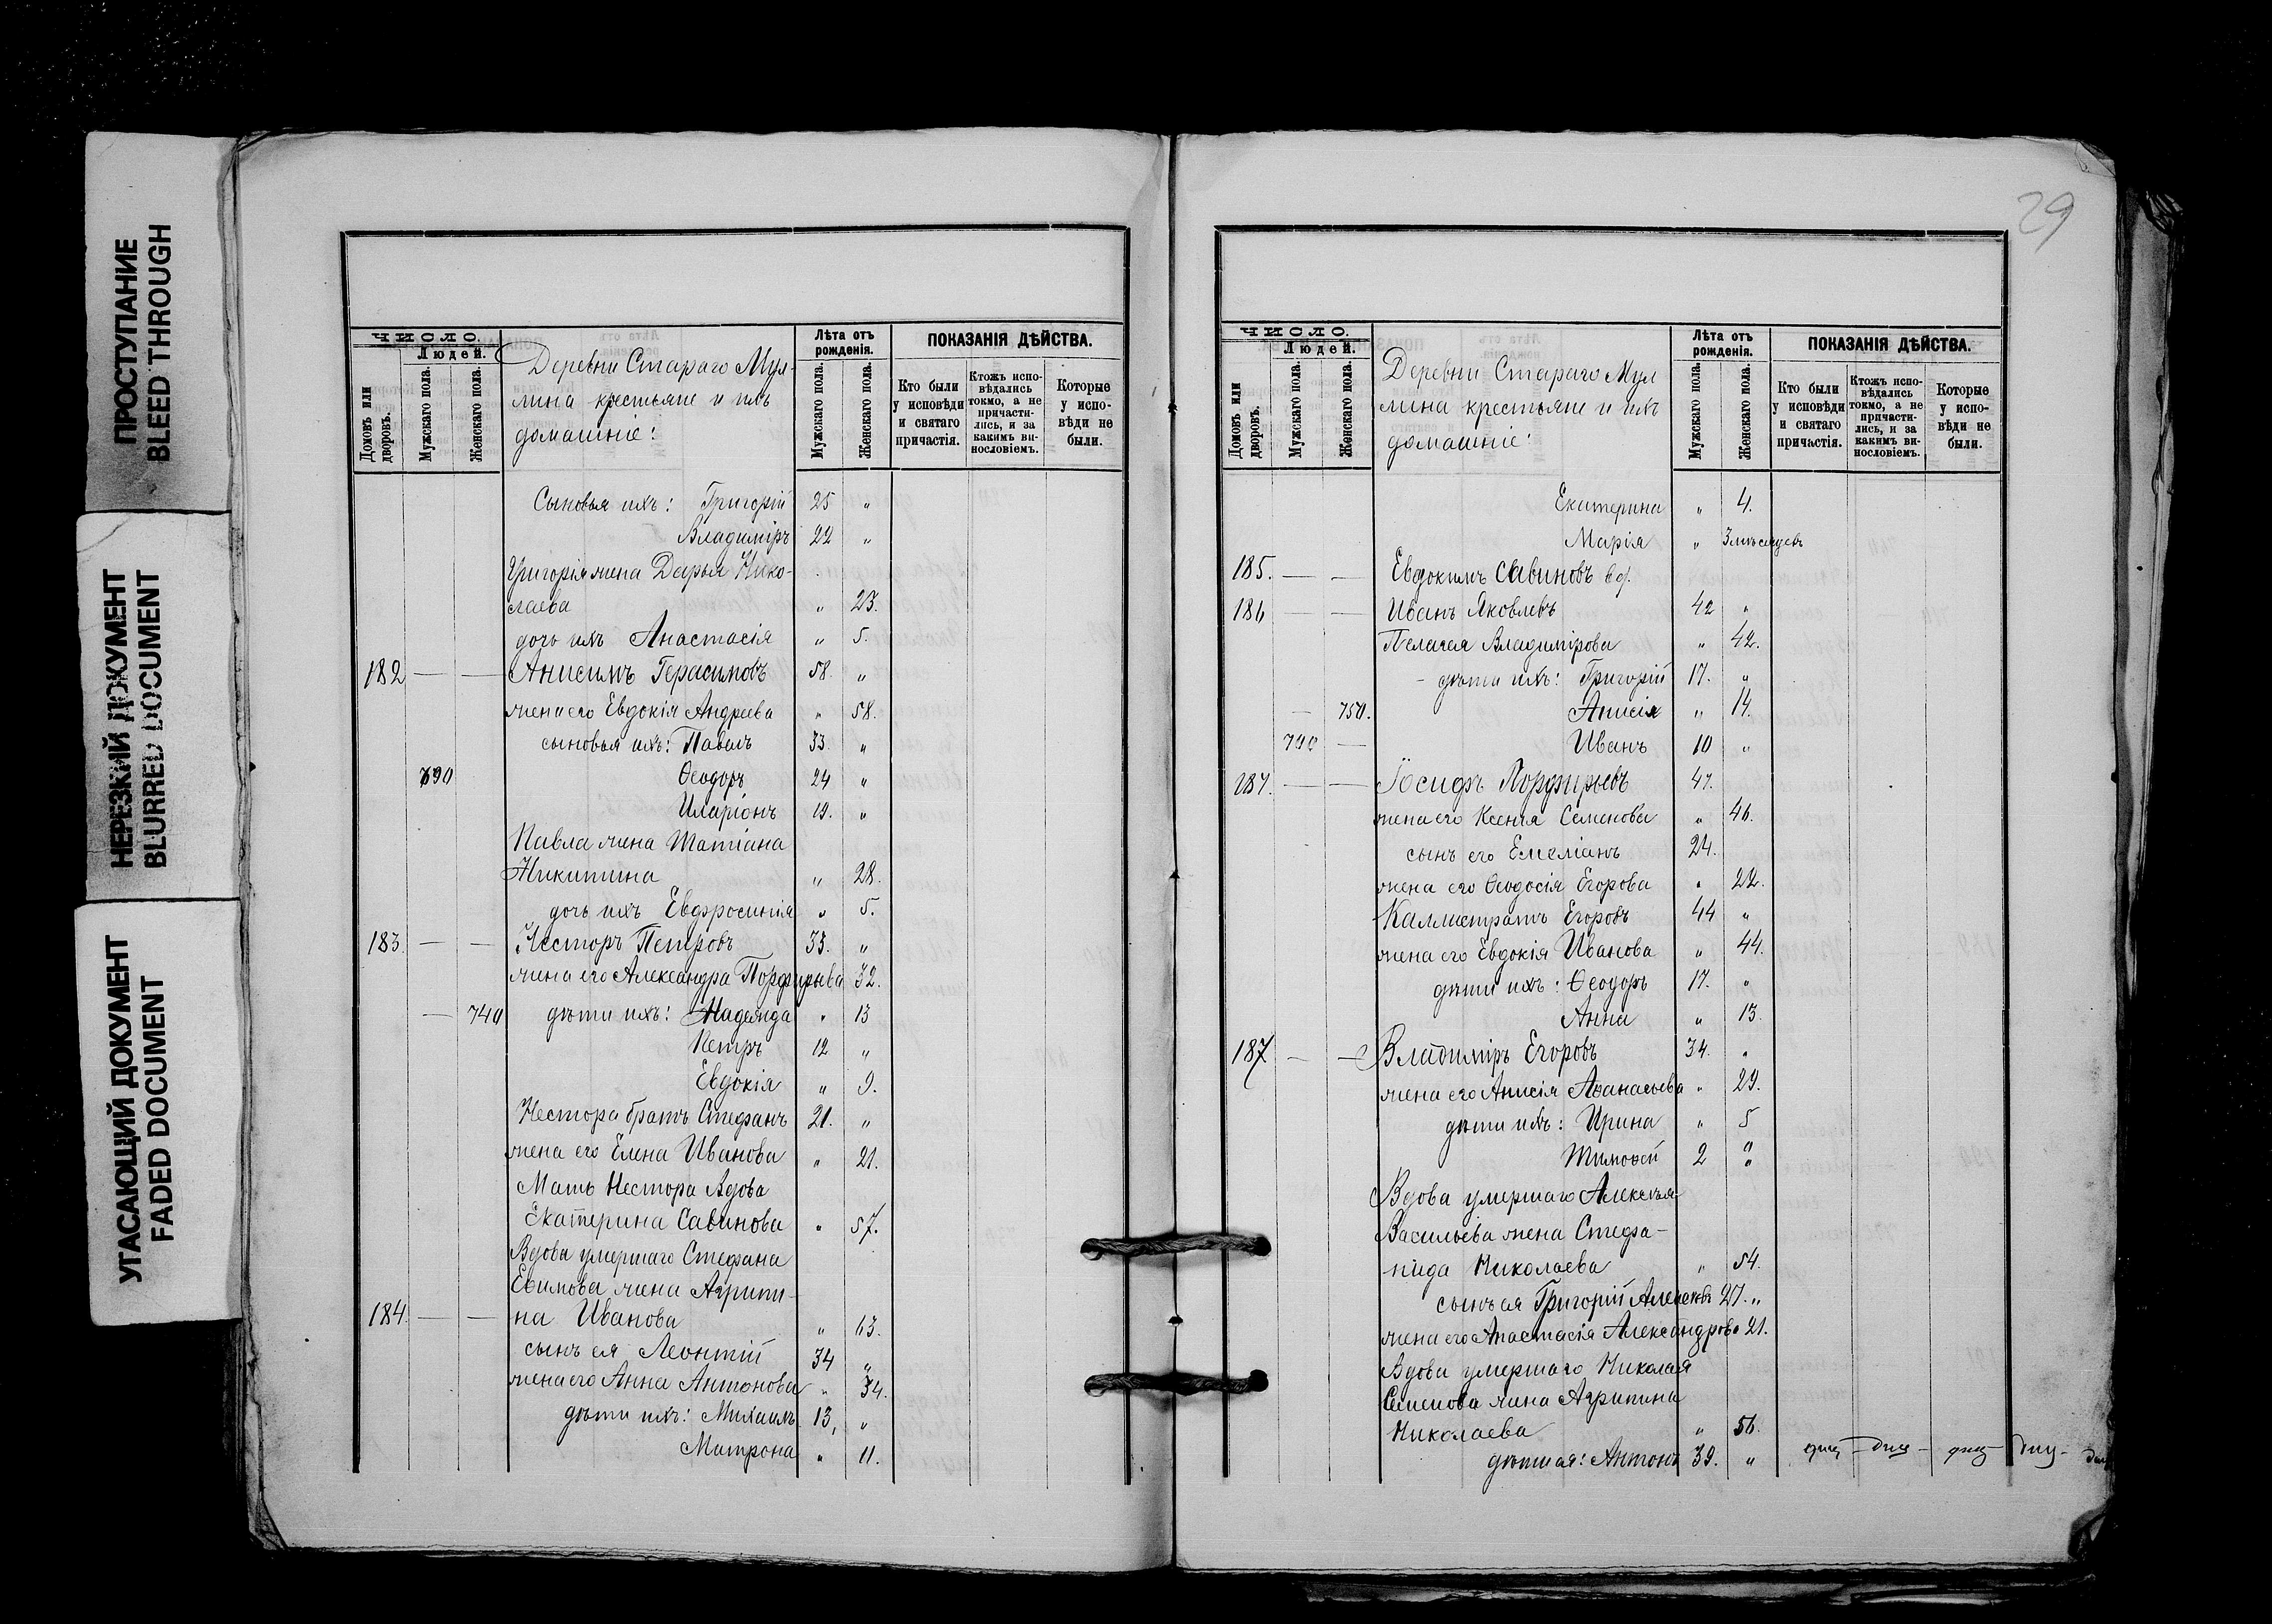 ПРОСТУПАНИЕ
BLEED THROUGH
НЕРЕЗКИЙ ДОКУМЕНТ
BLURRED DOCUMENT
УГАСАЮЩИЙ ДОКУМЕНТ
FADED DOCUMENT
ЧИСЛО.
Людей.
Домовъ или дворовъ.
Мужскаго пола.
Женскаго пола.
Деревни Стараго Мул-
лина крестьяне и ихъ
домашніе:
Лѣта отъ рожденія.
Мужскаго пола.
Женскаго пола.
ПОКАЗАНІЯ ДѢЙСТВА.
Кто были у исповѣди и святаго причастія.
Ктожъ испо-вѣдались токмо, а не причасти-лись, и за какимъ ви-нословіемъ.
Которые у испо-вѣди не были.
Сыновья ихъ: Григорій 25 „
Владиміръ 22 „
Григорія жена Дарья Нико-
лаева „ 23.
дочь ихъ Анастасія „ 5.
182 — — Анисимъ Герасимовъ 58. „
жена его Евдокія Андреева „ 58.
сыновья ихъ: Павелъ 33. „
690 Ѳеодоръ 24 „
Иларіонъ 19. „
Павла жена Татіана
Никитина „ 28.
дочь ихъ Евфросинія „ 5.
183 — — Несторъ Петровъ 33. „
жена его Александра Порфирьева 32.
— 740 дѣти ихъ: Надежда „ 13
Петръ 12 „
Евдокія „ 9.
Нестора братъ Стефанъ 21. „
жена его Елена Иванова „ 21.
Мать Нестора вдова
Екатерина Савинова „ 57.
Вдова умершаго Стефана
Евимова жена Агрипи-
184. — — на Иванова „ 63.
сынъ ея Леонтій 34 „
жена его Анна Антонова „ 34.
дѣти ихъ: Михаилъ 13, „
Матрона „ 11.
29
ЧИСЛО.
Людей.
Домовъ или дворовъ.
Мужскаго пола.
Женскаго пола.
Деревни Стараго Мул
лина крестьяне и ихъ
домашніе:
Лѣта отъ рожденія.
Мужскаго пола.
Женскаго пола.
ПОКАЗАНІЯ ДѢЙСТВА.
Кто были у исповѣди и святаго причастія.
Ктожъ испо-вѣдались токмо, а не причасти-лись, и за какимъ ви-нословіемъ.
Которые у испо-вѣди не были.
Екатерина „ 4.
Марія „ 3 мѣсяцевъ
185. — — Евдокимъ Савиновъ
186 — — Иванъ Яковлевъ 42 „
Пелагея Владимірова „ 42.
— дѣти ихъ: Григорій 17. „
— 750. Анисія „ 14.
700 — Иванъ 10 „
187. — — Іосифъ Порфирьевъ 47.
жена его Ксенія Семенова „ 46.
сынъ его Емеліанъ 24.
жена его Ѳеодосія Егорова „ 22.
Каллистратъ Егоровъ 44 „
жена его Евдокія Иванова „ 44.
дѣти ихъ: Ѳеодоръ 17. „
Анна „ 13.
187 — — Владиміръ Егоровъ 34. „
жена его Анисія Аѳанасьева „ 29.
дѣти ихъ: Ирина „ 5
Тимоѳей 2 „
Вдова умершаго Алексѣя
Васильева жена Стефа-
нида Николаева „ 54.
сынъ ея Григорій Алексѣевъ 27. „
жена его Анастасія Александрова 21.
Вдова умершаго Николая
Семенова жена Агрипина
Николаева „ 56.
дѣти ея: Антонъ 39. „